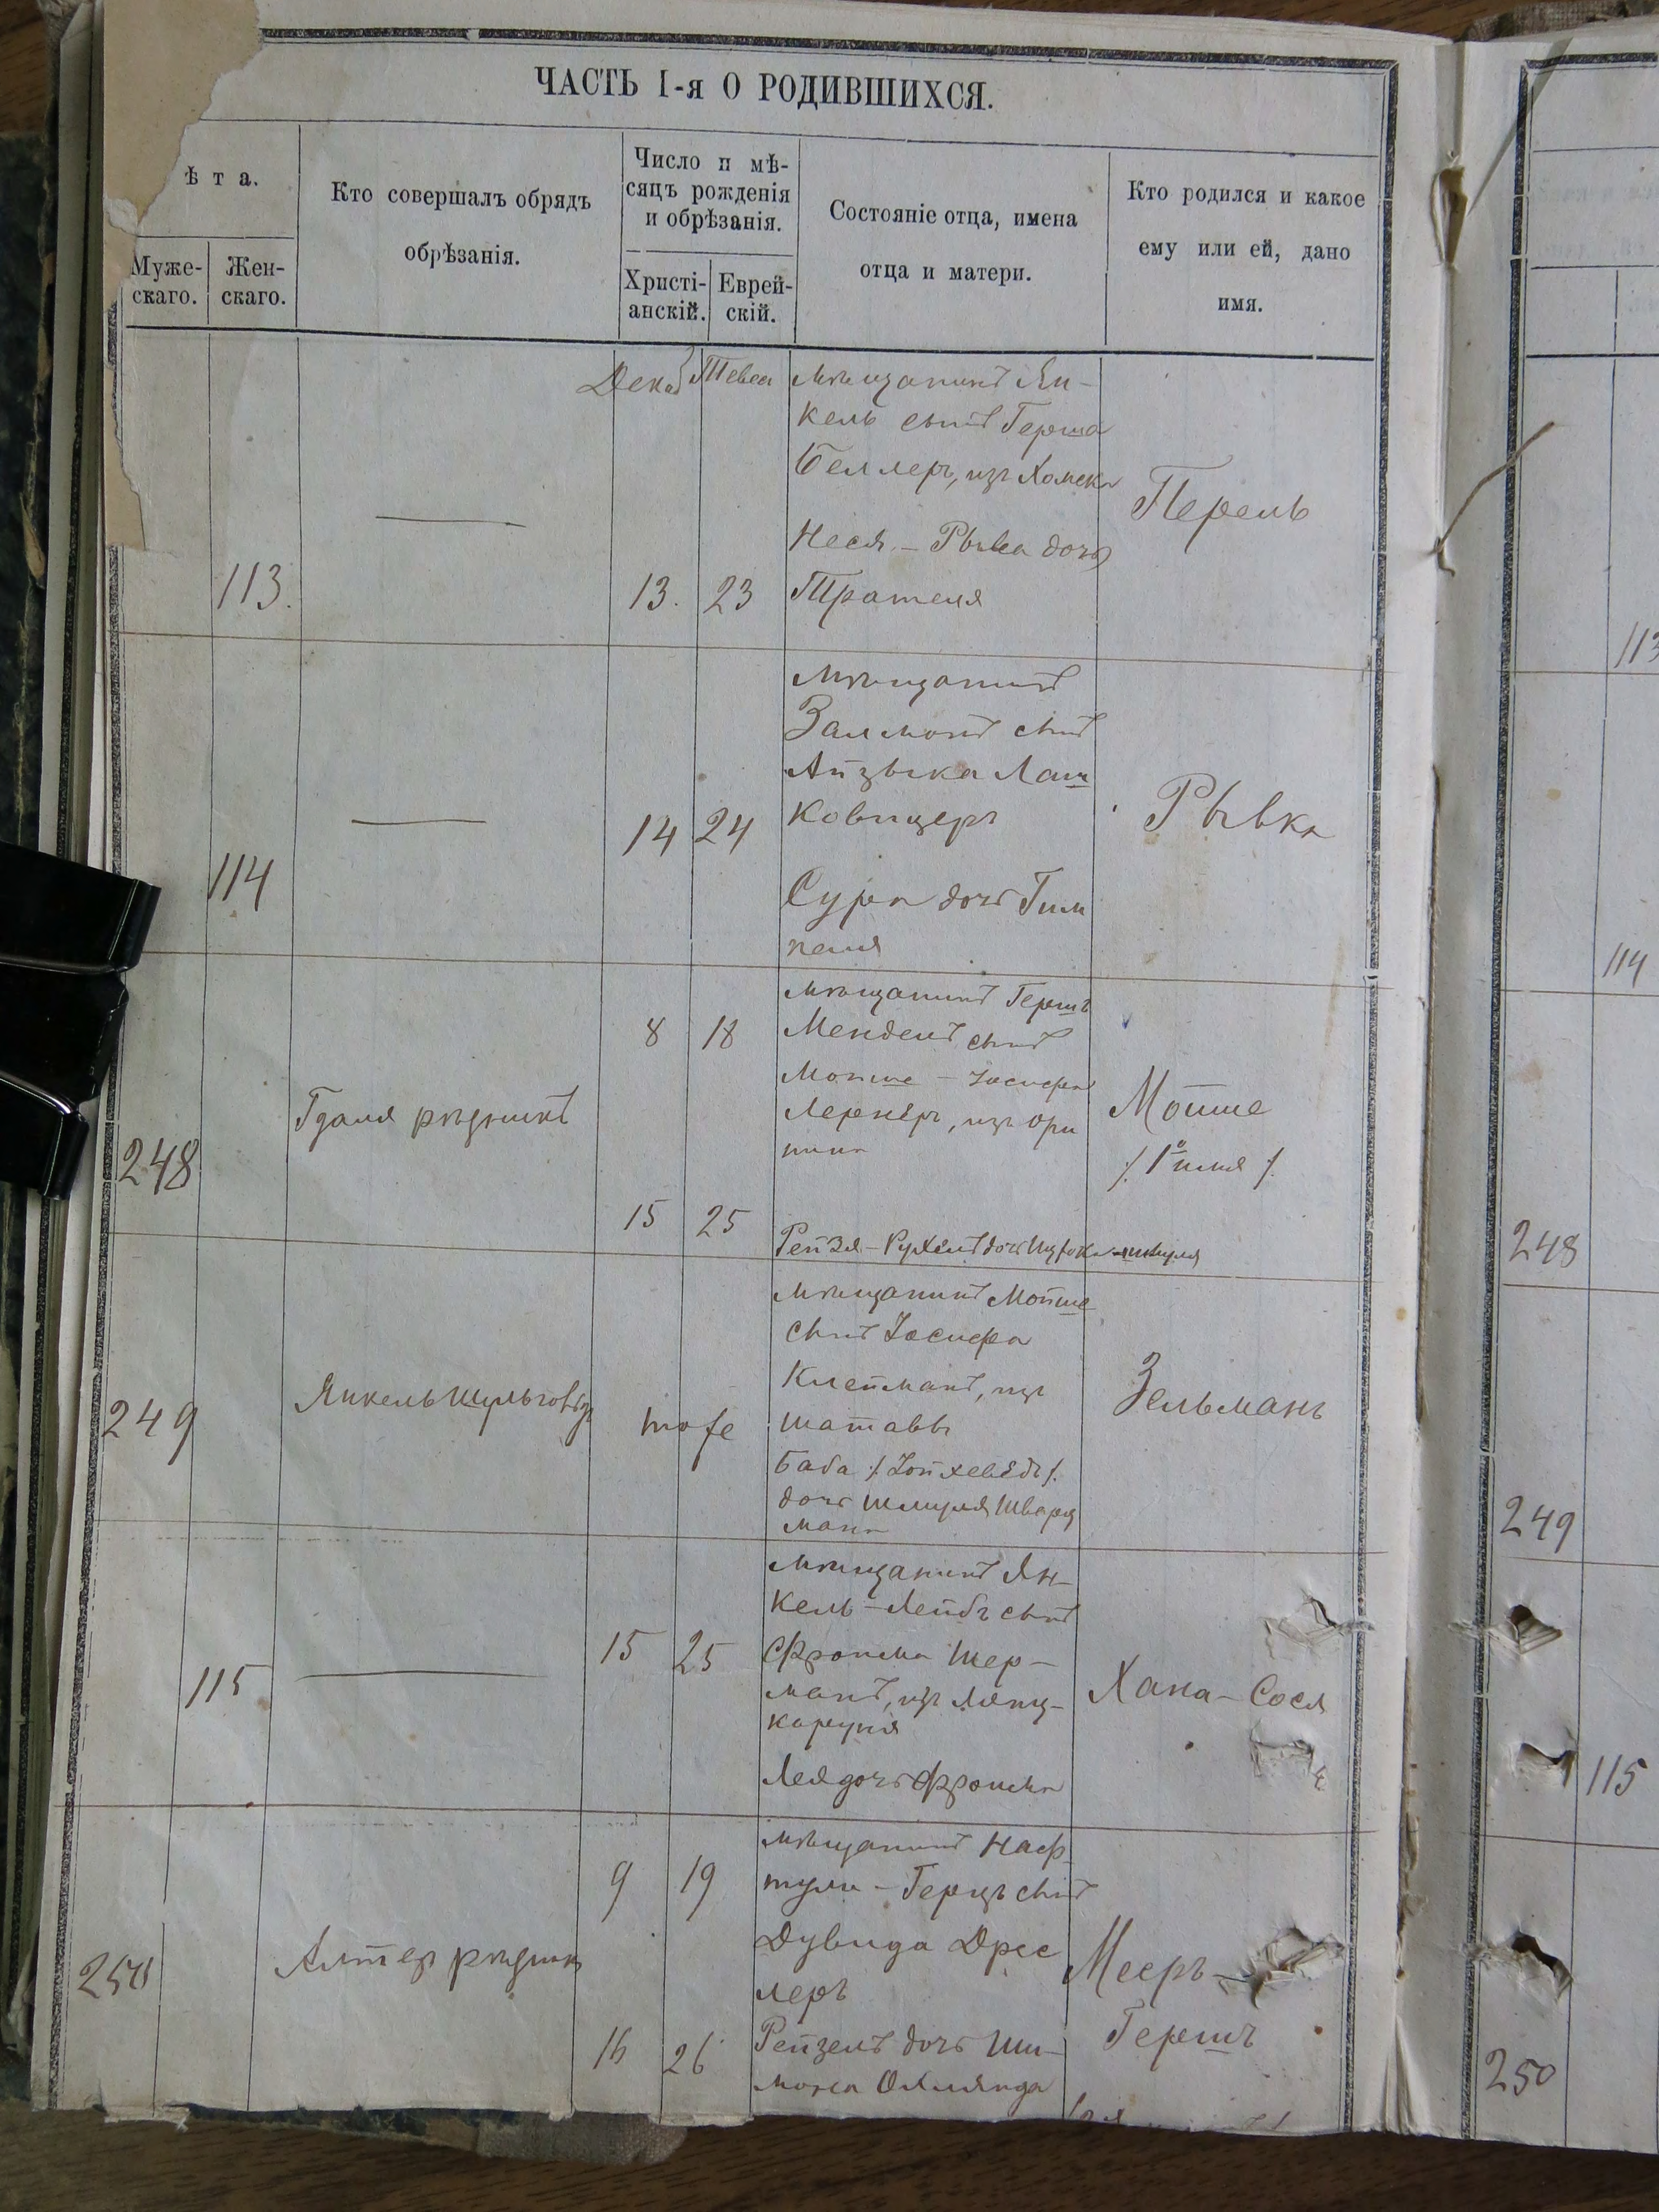 ЧАСТЬ I-я О РОДИВШИХСЯ.
ѣ т а.
Муже-
скаго.
Жен-
скаго.
Кто совершалъ обрядъ
обрѣзанія.
Число и мѣ-
сяцъ рожденія
и обрѣзанія.
Христі-
анскій.
Еврей-
скій.
Состояніе отца, имена
отца и матери.
Кто родился и какое
ему или ей, дано
имя.
Декаб
Тевеса
113.
13.
23
Мѣщанинъ Ян-
кель сынъ Герша
Беллеръ, изъ
Неся - Рывка дочь
Перель
114
14
24
Мѣщанинъ
Залманъ сынъ
Айзыка Лаш
ковицеръ
Сура дочь Гим
пеля
Рывка
248
Гдаля рѣзникъ
8
18
15
25
Мѣщанинъ Гершъ
Мендель сынъ
Мойше - Іосифа
Лернеръ, изъ Ори
нина
Рейзя - Рухель дочь
Мойше
/. 1е имя /.
249
Янкель
тоже
Мѣщанинъ Мойше
сынъ Іосифа
Клейманъ, изъ
Шатавы
Баба /. Іойхеведъ /.
дочь Шмуля Шварц
мана
Зельманъ
115
15
25
Мѣщанинъ Ян-
кель - Лейбъ сынъ
Фроима Шер-
манъ, изъ Лянц-
коруня
Лея дочь Фроима
Хана - Сося
250
Алтер рѣзник
9
19
16
26
Мѣщанинъ Наф
тули - Герцъ сынъ
Дувида Дрес
леръ
Рейзель дочь Ши-
мона
Мееръ -
Гершъ
113
114
248
249
115
250